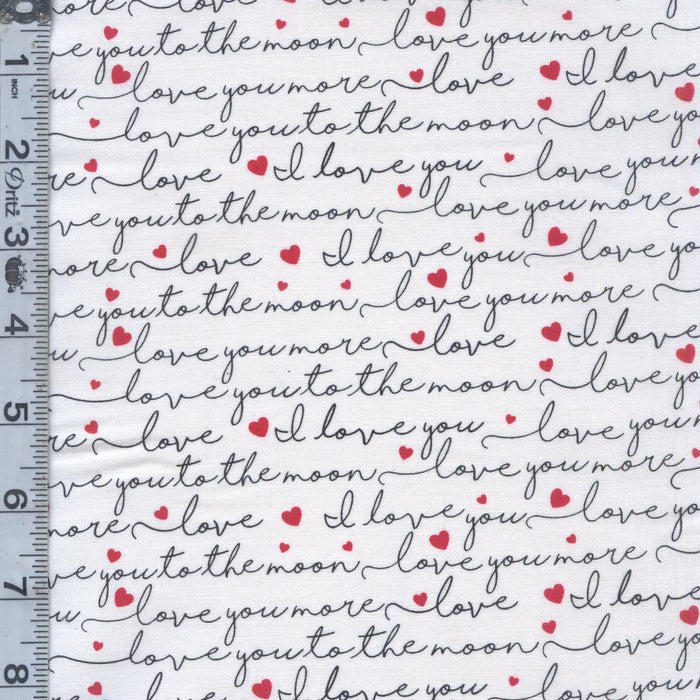 ore love I love you love yo
ve you to the moon love you more
u love you more love I love
love you to the moon love yo
re love I love you love you
ve you to the moon love you more
more love I love you love yo
ve you to the moon love you more
u love you more love I love
love you to the moon love yo
re love I love you love you
ve you to the moon love you more
more love I love you love yo
ve you to the moon love you more
u love you more love I love
love you to the moon love yo
re love I love you love you
1
INCH
2
Dritz
3
4
5
6
7
8